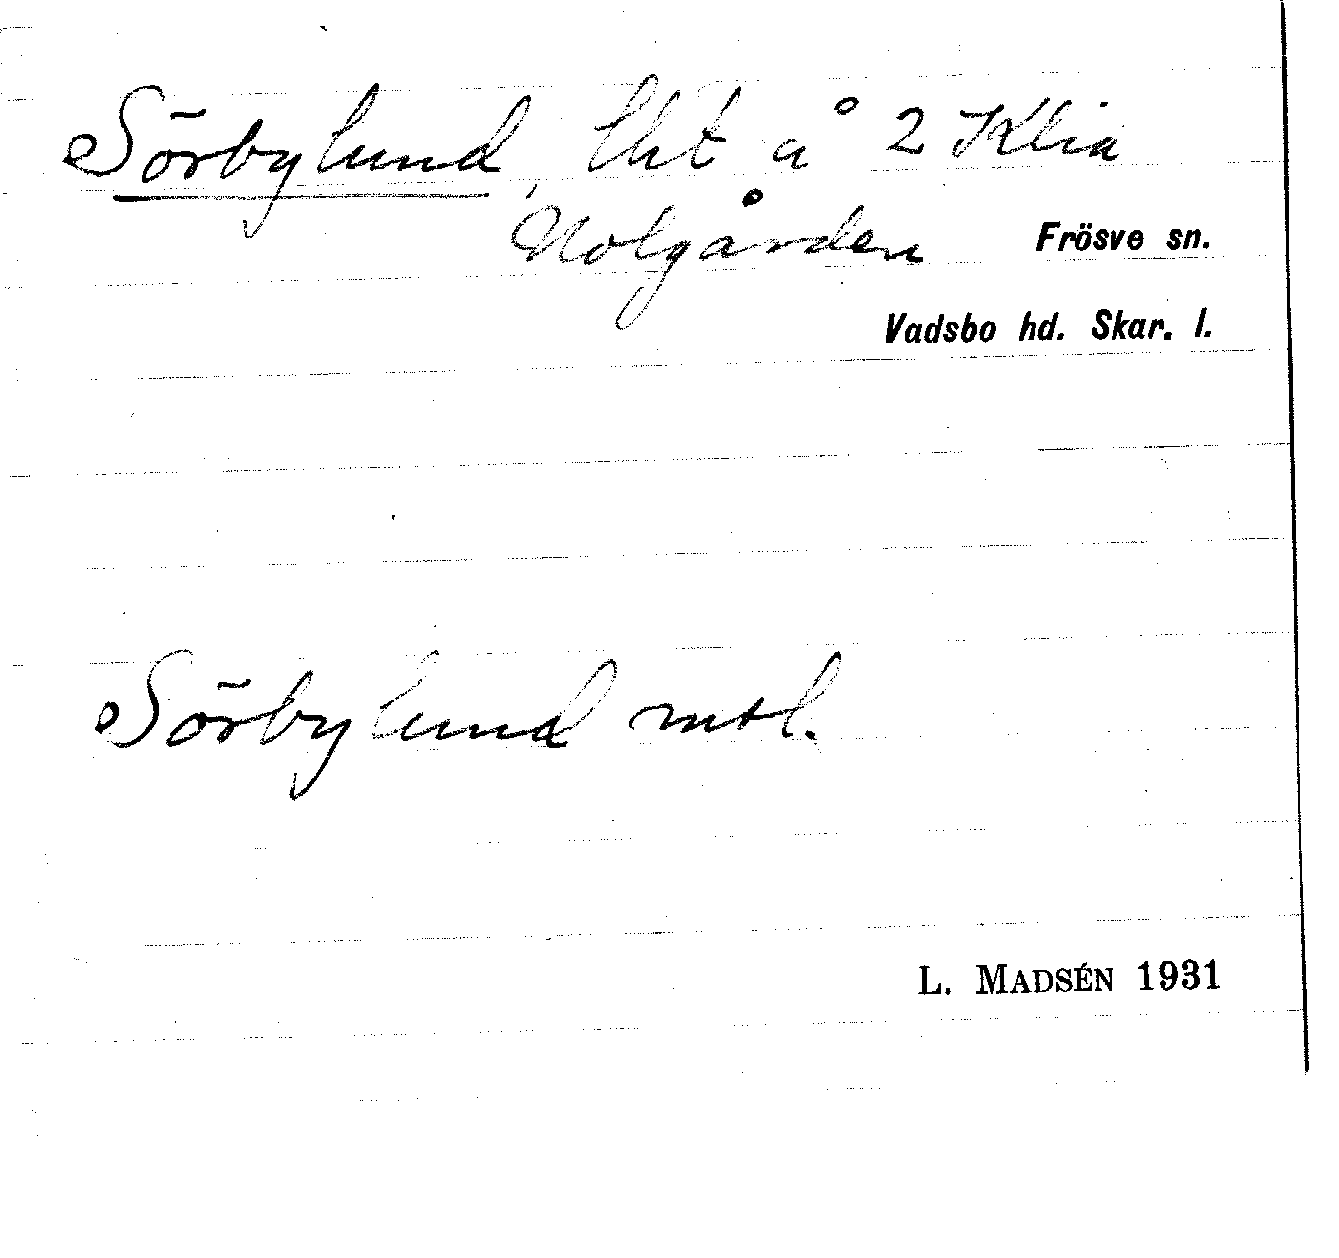 Sörbylund, lht å 2 Klia
Nolgården Frösve sn.
Vadsbo hd. Skar. l.
Sörbylund mtl.
L. MADSÉN 1931